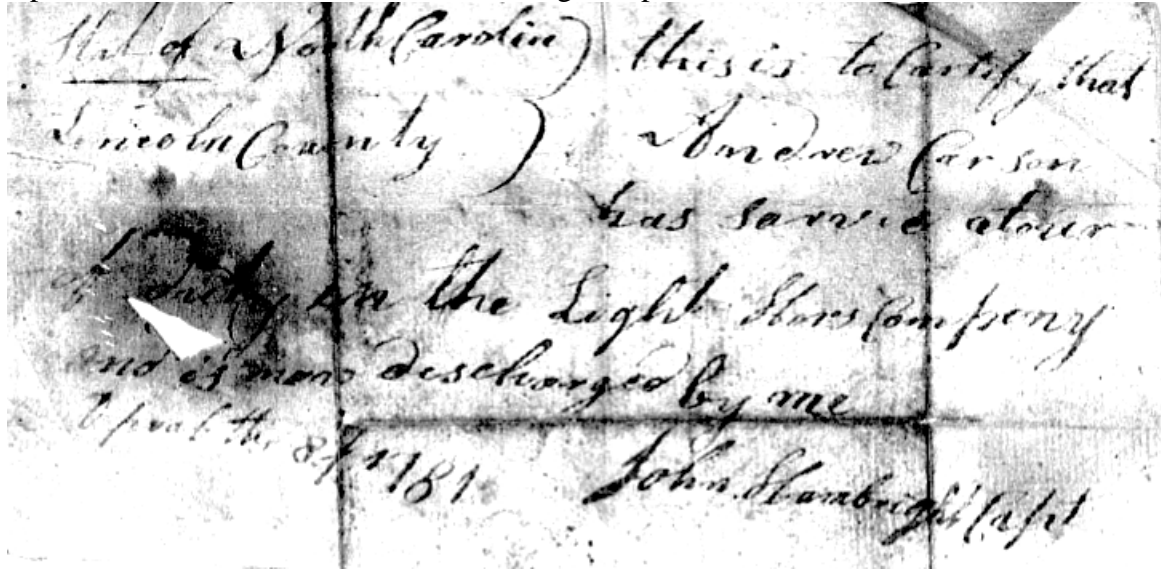 Stat of North Carolin) this is to Cartify that
Lincoln County ) Andrew Carson
has sarvie atour
of duty in the Light Hors Compeny
and is discharged by me
Apral the 8th 1781 John Hambright Capt